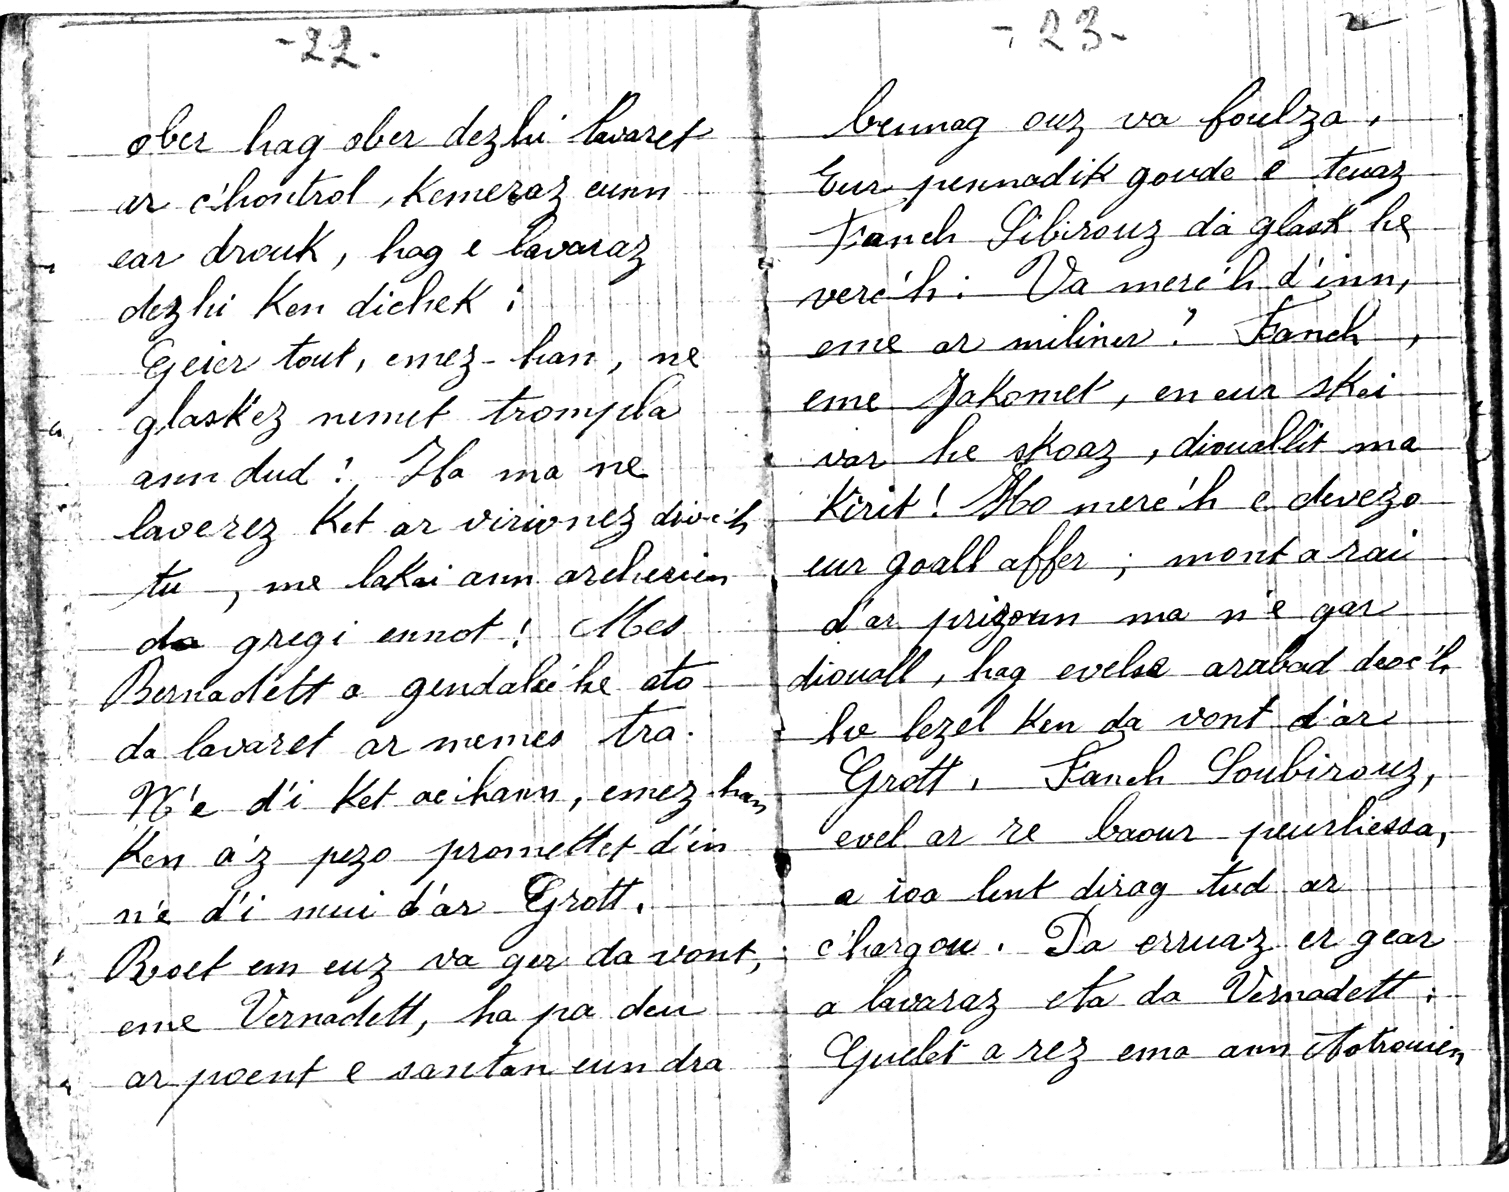 -22-
ober hag ober dezhi lavaret
ar c'hontrol, kemeraz eunn
ear drouk, hag e lavaraz
dezhi ken dichek :
Geier tout, emez-han, ne
glaskez nemet trompla
ann dud ! Ha ma ne
laverez ket ar virionez dioc'h
tu, me lakai ann archerien
da gregi ennot ! Mes
Bernadett a gendalc'he ato
da lavaret ar memes tra.
N'e d'i ket ac'hann, emez han
ken a'z pezo promettet d'in
n'e d'i mui d'ar Grott.
Roet em euz va ger da vont,
eme Vernadett, ha pa deu
ar poent e santan eun dra
-23-
bennag ouz va foulza.
Eur pennadik goude e teuaz
Fanch Sibirouz da glask he
verc'h : Va merc'h d'inn,
eme ar miliner ? Fanch,
eme Jakomet, en eur skei
var he skoaz, diouallit ma
kirit ! Ho merc'h e devezo
eur goall affer ; mont a rai
d'ar prizoun ma n'e gar
diouall, hag evelse arabad deoc'h
he lezel ken da vont d'ar
Grott. Fanch Soubirouz,
evel ar re baour peurliessa,
a ioa lent dirag tud ar
c'hargou. Pa erruaz er gear
a lavaraz eta da Vernadett :
Guelet a rez ema ann Aotrouien